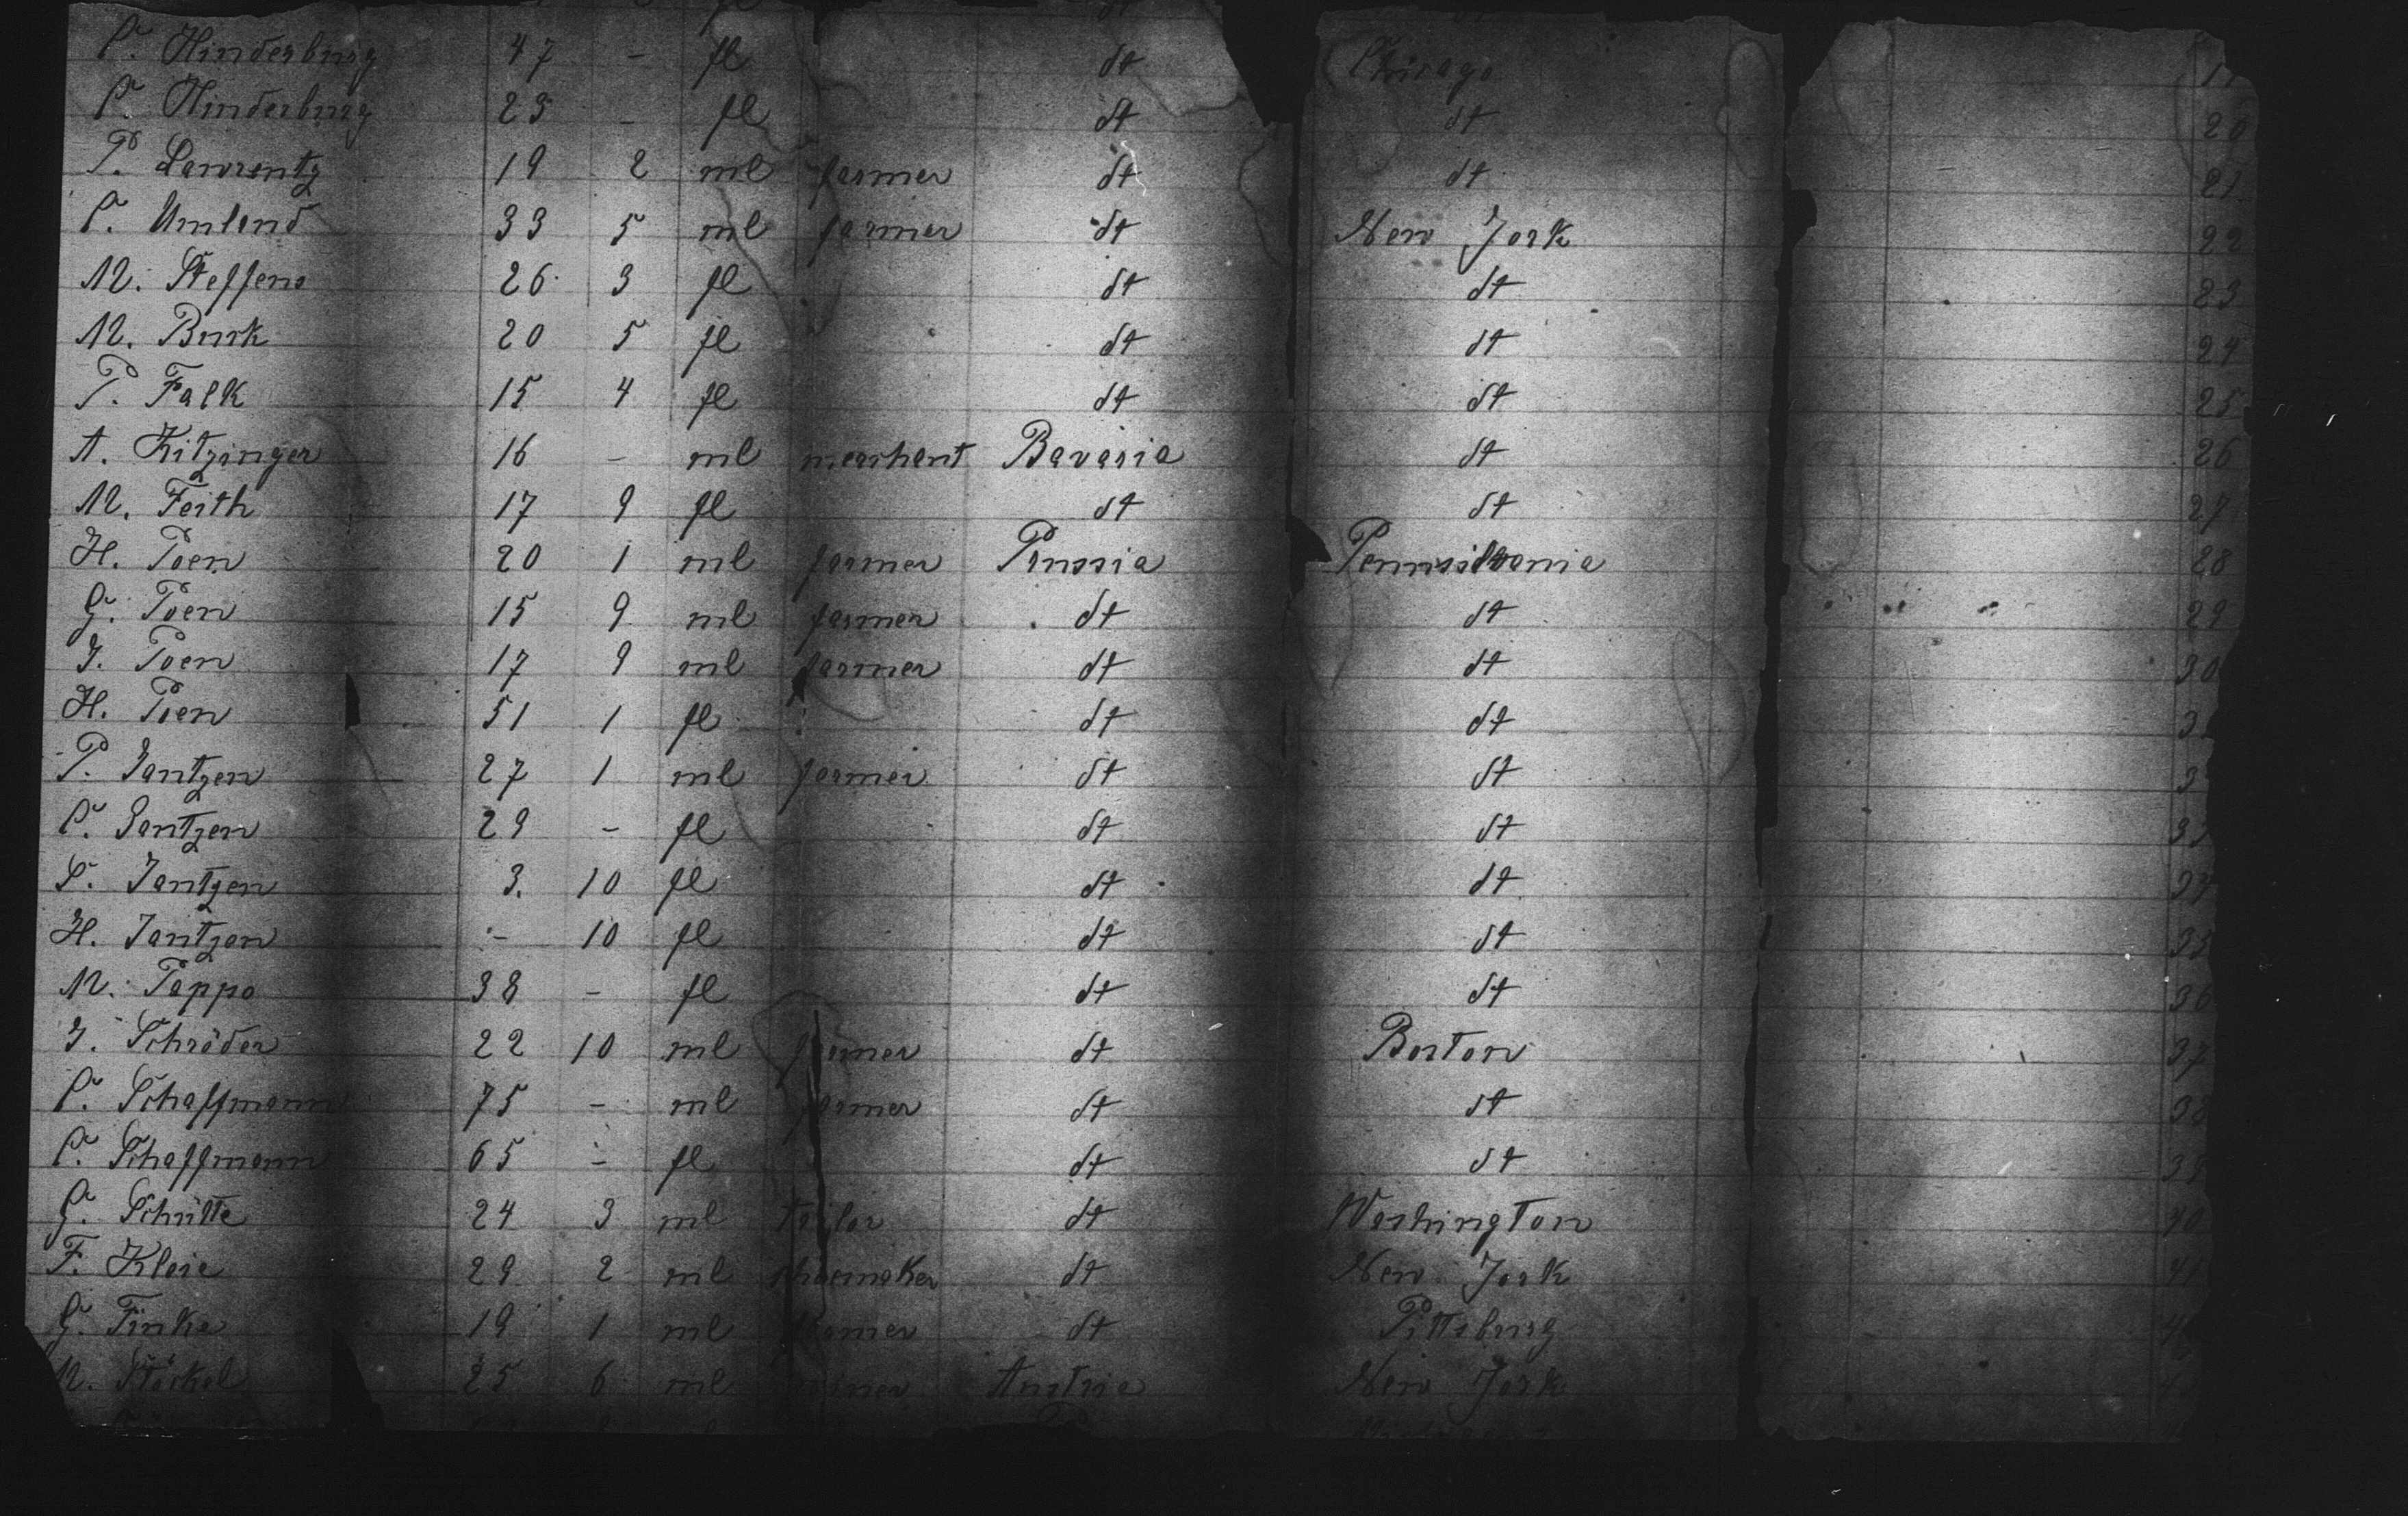 C. Hinderburg 47 - fl dt Chicago 19
C. Hinderburg 23 - fl dt dt 20
P. Lawrentz 19 2 ml farmer dt dt 21
C. Umland 33 5 ml farmer dt New York 22
M. Steffens 26 3 fl dt dt 23
M. Burk 20 5 fl dt dt 24
P. Falk 15 4 fl dt dt 25
A. Kitzinger 16 - ml merchant Bavaria dt 26
M. Feith 17 9 fl dt dt 27
H. Poen 20 1 ml farmer Prussia Pennsilvania 28
G. Poen 15 9 ml farmer dt dt 29
J. Poen 17 9 ml farmer dt dt 30
H. Poen 51 1 fl dt dt 3
P. Jantzen 27 1 ml farmer dt dt 3
C. Jantzen 29 - fl dt dt 33
S. Jantzen 3. 10 fl dt dt 34
H. Jantzen - 10 fl dt dt 35
M. Poppo 38 - fl dt dt 36
J. Schröder 22 10 ml farmer dt Boston 37
C. Schaffmann 75 - ml farmer dt dt 38
C. Schaffmann 65 - fl dt dt 39
G. Schütte 24 3 ml tailor dt Washington 40
F. Kleie 29 2 ml shoemaker dt New York 41
G. Finke 19 1 ml farmer dt Pittsburg 4
M. Stöckel 25 6 ml Austria New York 4